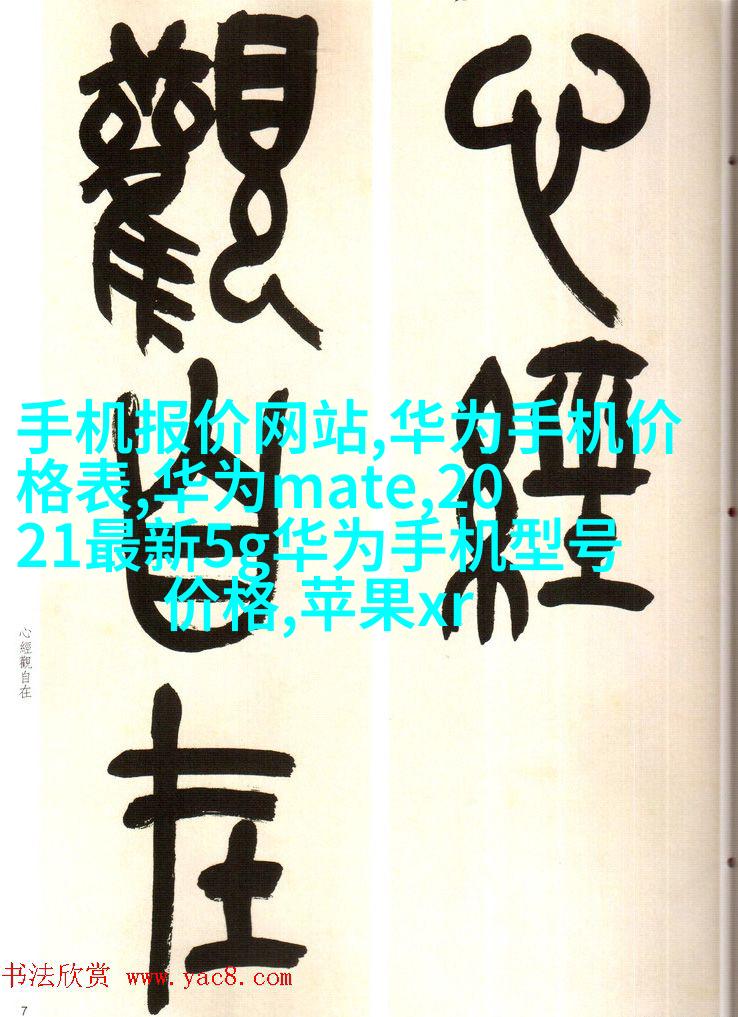 心經
觀自在
手机报价网站,华为手机价
格表,华为mate,20
21最新5g华为手机型号
价格,苹果xr
心經觀自在
书法欣赏 www.yac8.com
7